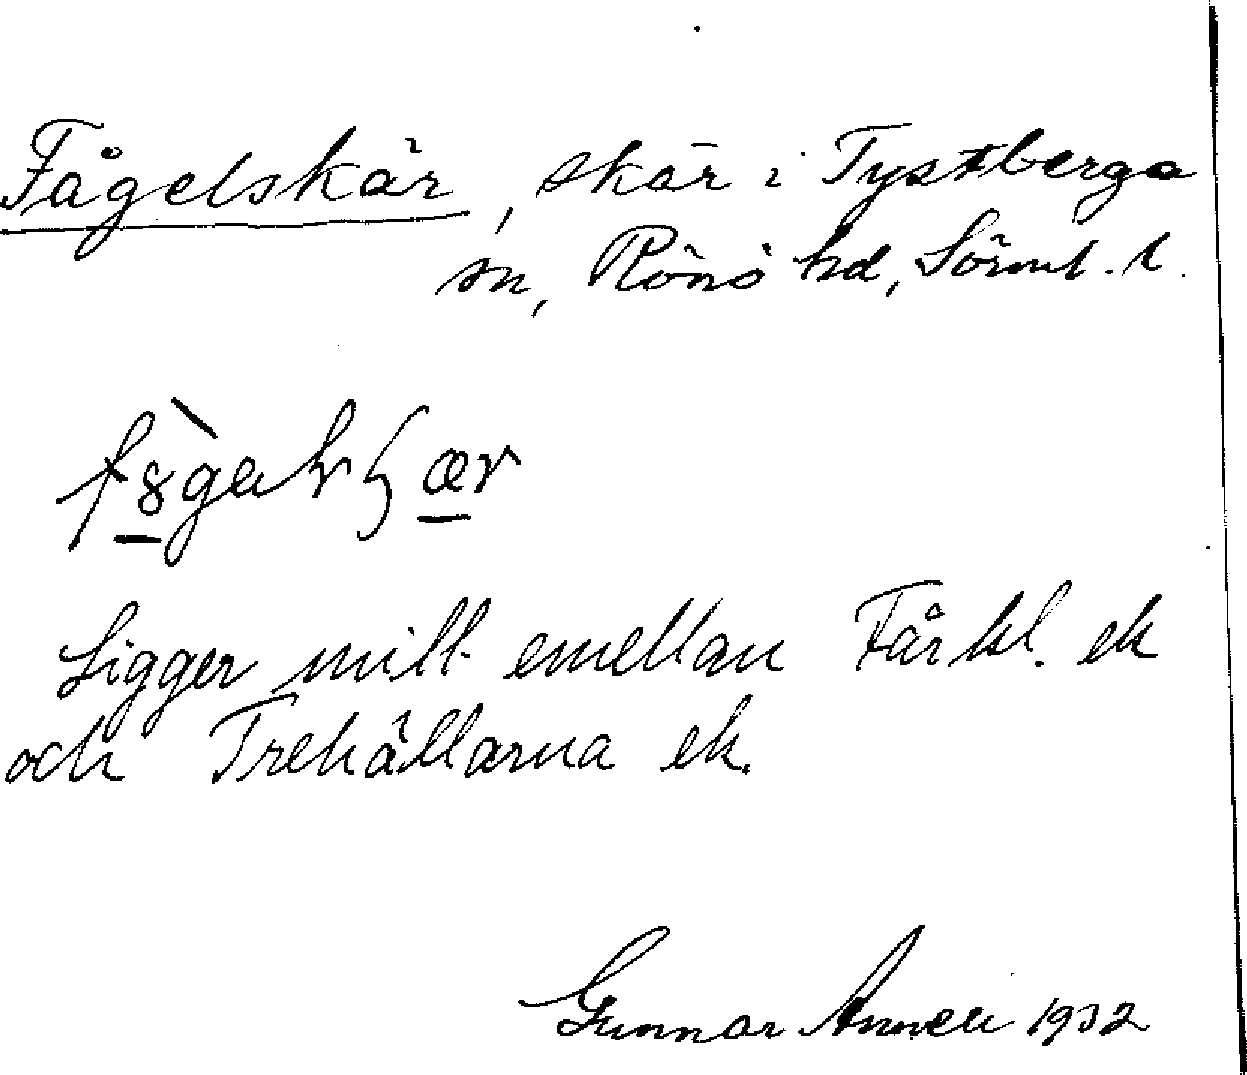 Fågelskär, skär i Tystberga
sn, Rönö hd, Sörml. l.
Ligger mitt emellan Fårkl. ek
och Trehällarna ek.
Gunnar Annell 1932